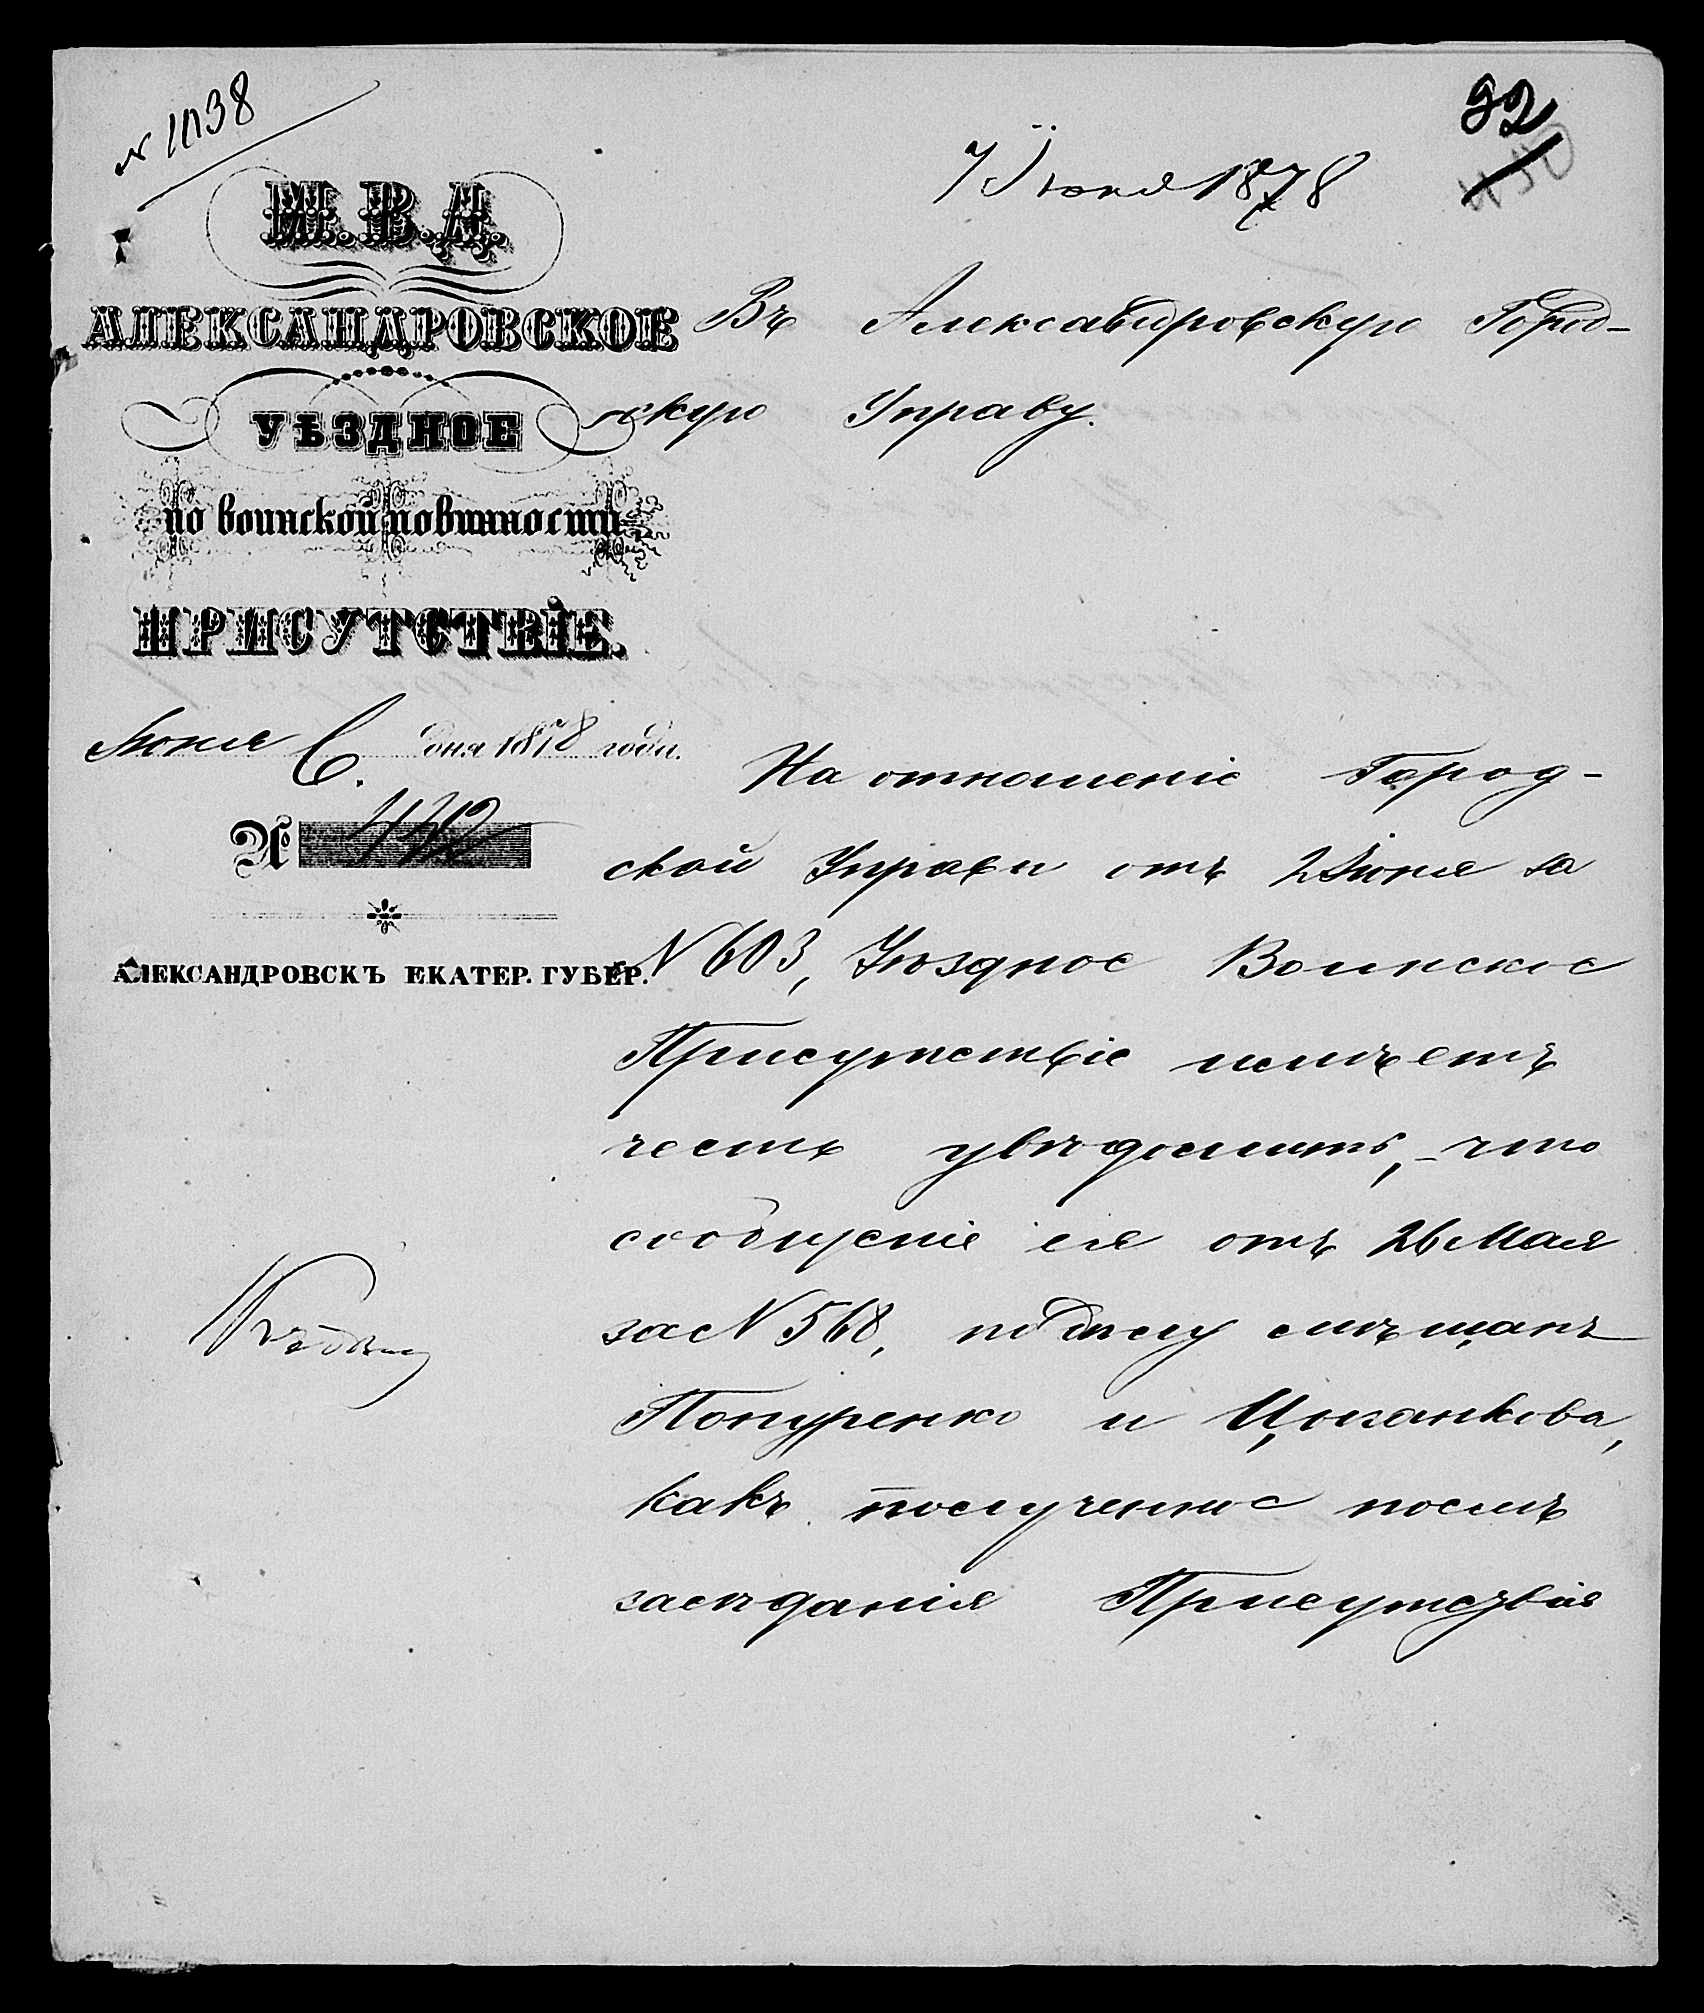 № 1038
92
7 Июня 1878
М. В. Д.
АЛЕКСАНДРОВСКОЕ
УѢЗДНОЕ
по воинской повинности
ПРИСУТСТВІЕ.
Іюня 6. дня 1878 года.
№ 442
АЛЕКСАНДРОВСКЪ ЕКАТЕР. ГУБЕР.
Въ Александровскую Город-
скую Управу.
На отношеніе Город-
ской Управы отъ 2 Іюня за
№ 603, Уѣздное Воинское
Присутствіе имѣетъ
честь увѣдомить, что
сообщеніе ея отъ 26 Мая
за № 568, по дѣлу мѣщанъ
Попуренко и Цыганкова,
какъ полученное послѣ
засѣданія Присутствія